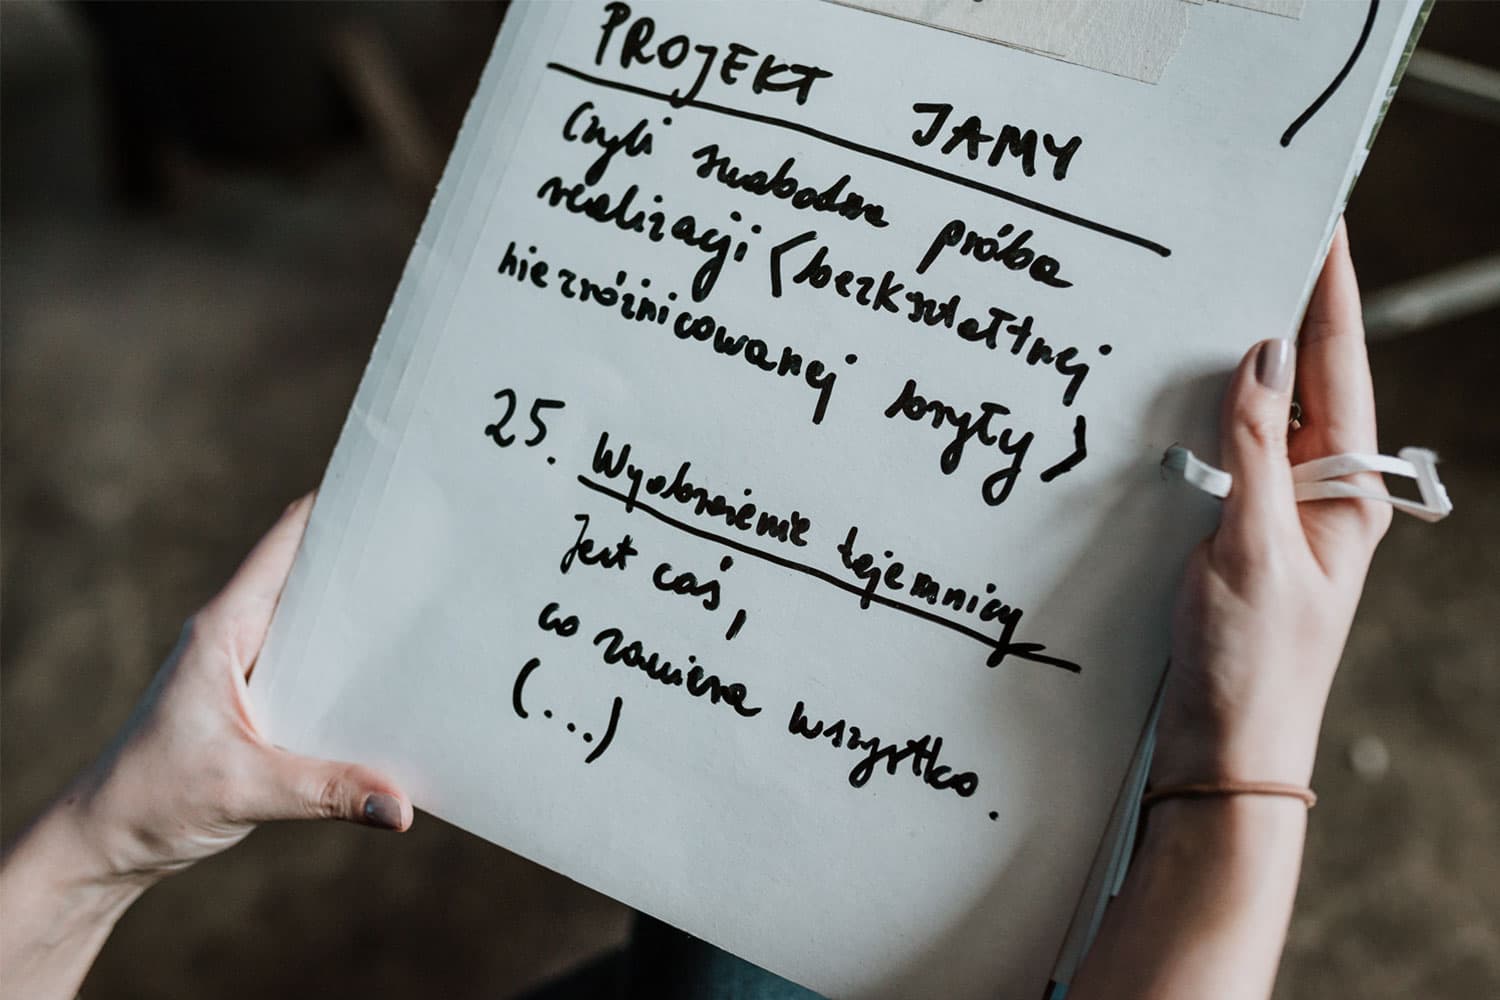 PROJEKT JAMY
czyli swobodna próba
realizacji (bezkształtnej
niezróżnicowanej bryły)
25. Wyobrażenie tajemnicy
Jest coś,
co zawiera wszystko.
(...)